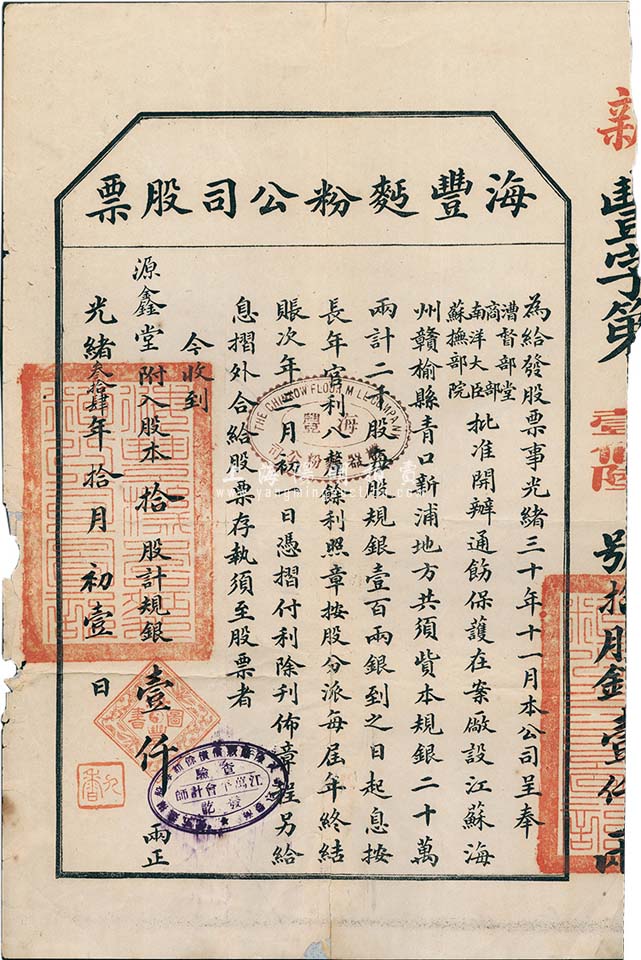 海豐麪粉公司股票
為給發股票事光緒三十年十一月本公司呈奉
漕督部堂
商部
南洋大臣
蘇撫部院
批准開辦通飭保護在案廠設江蘇海
州贛榆縣青口新浦地方共須貲本規銀二十萬
兩計二千股每股規銀壹百兩銀到之日起息按
長年官利八釐餘利照章按股分派每屆年終結
賬次年二月初一日憑摺付利除刋佈章程另給
息摺外合給股票存執須至股票者
今收到
源鑫堂附入股本拾股計規銀壹仟兩正
光緒叁拾肆年拾月初壹日
新
豐字第
號拾股銀壹仟兩
THE CHINKOW FLOUR MILL COMPANY
海
贛
麪粉公司
查驗
江萬平會計師
發訖
圖書